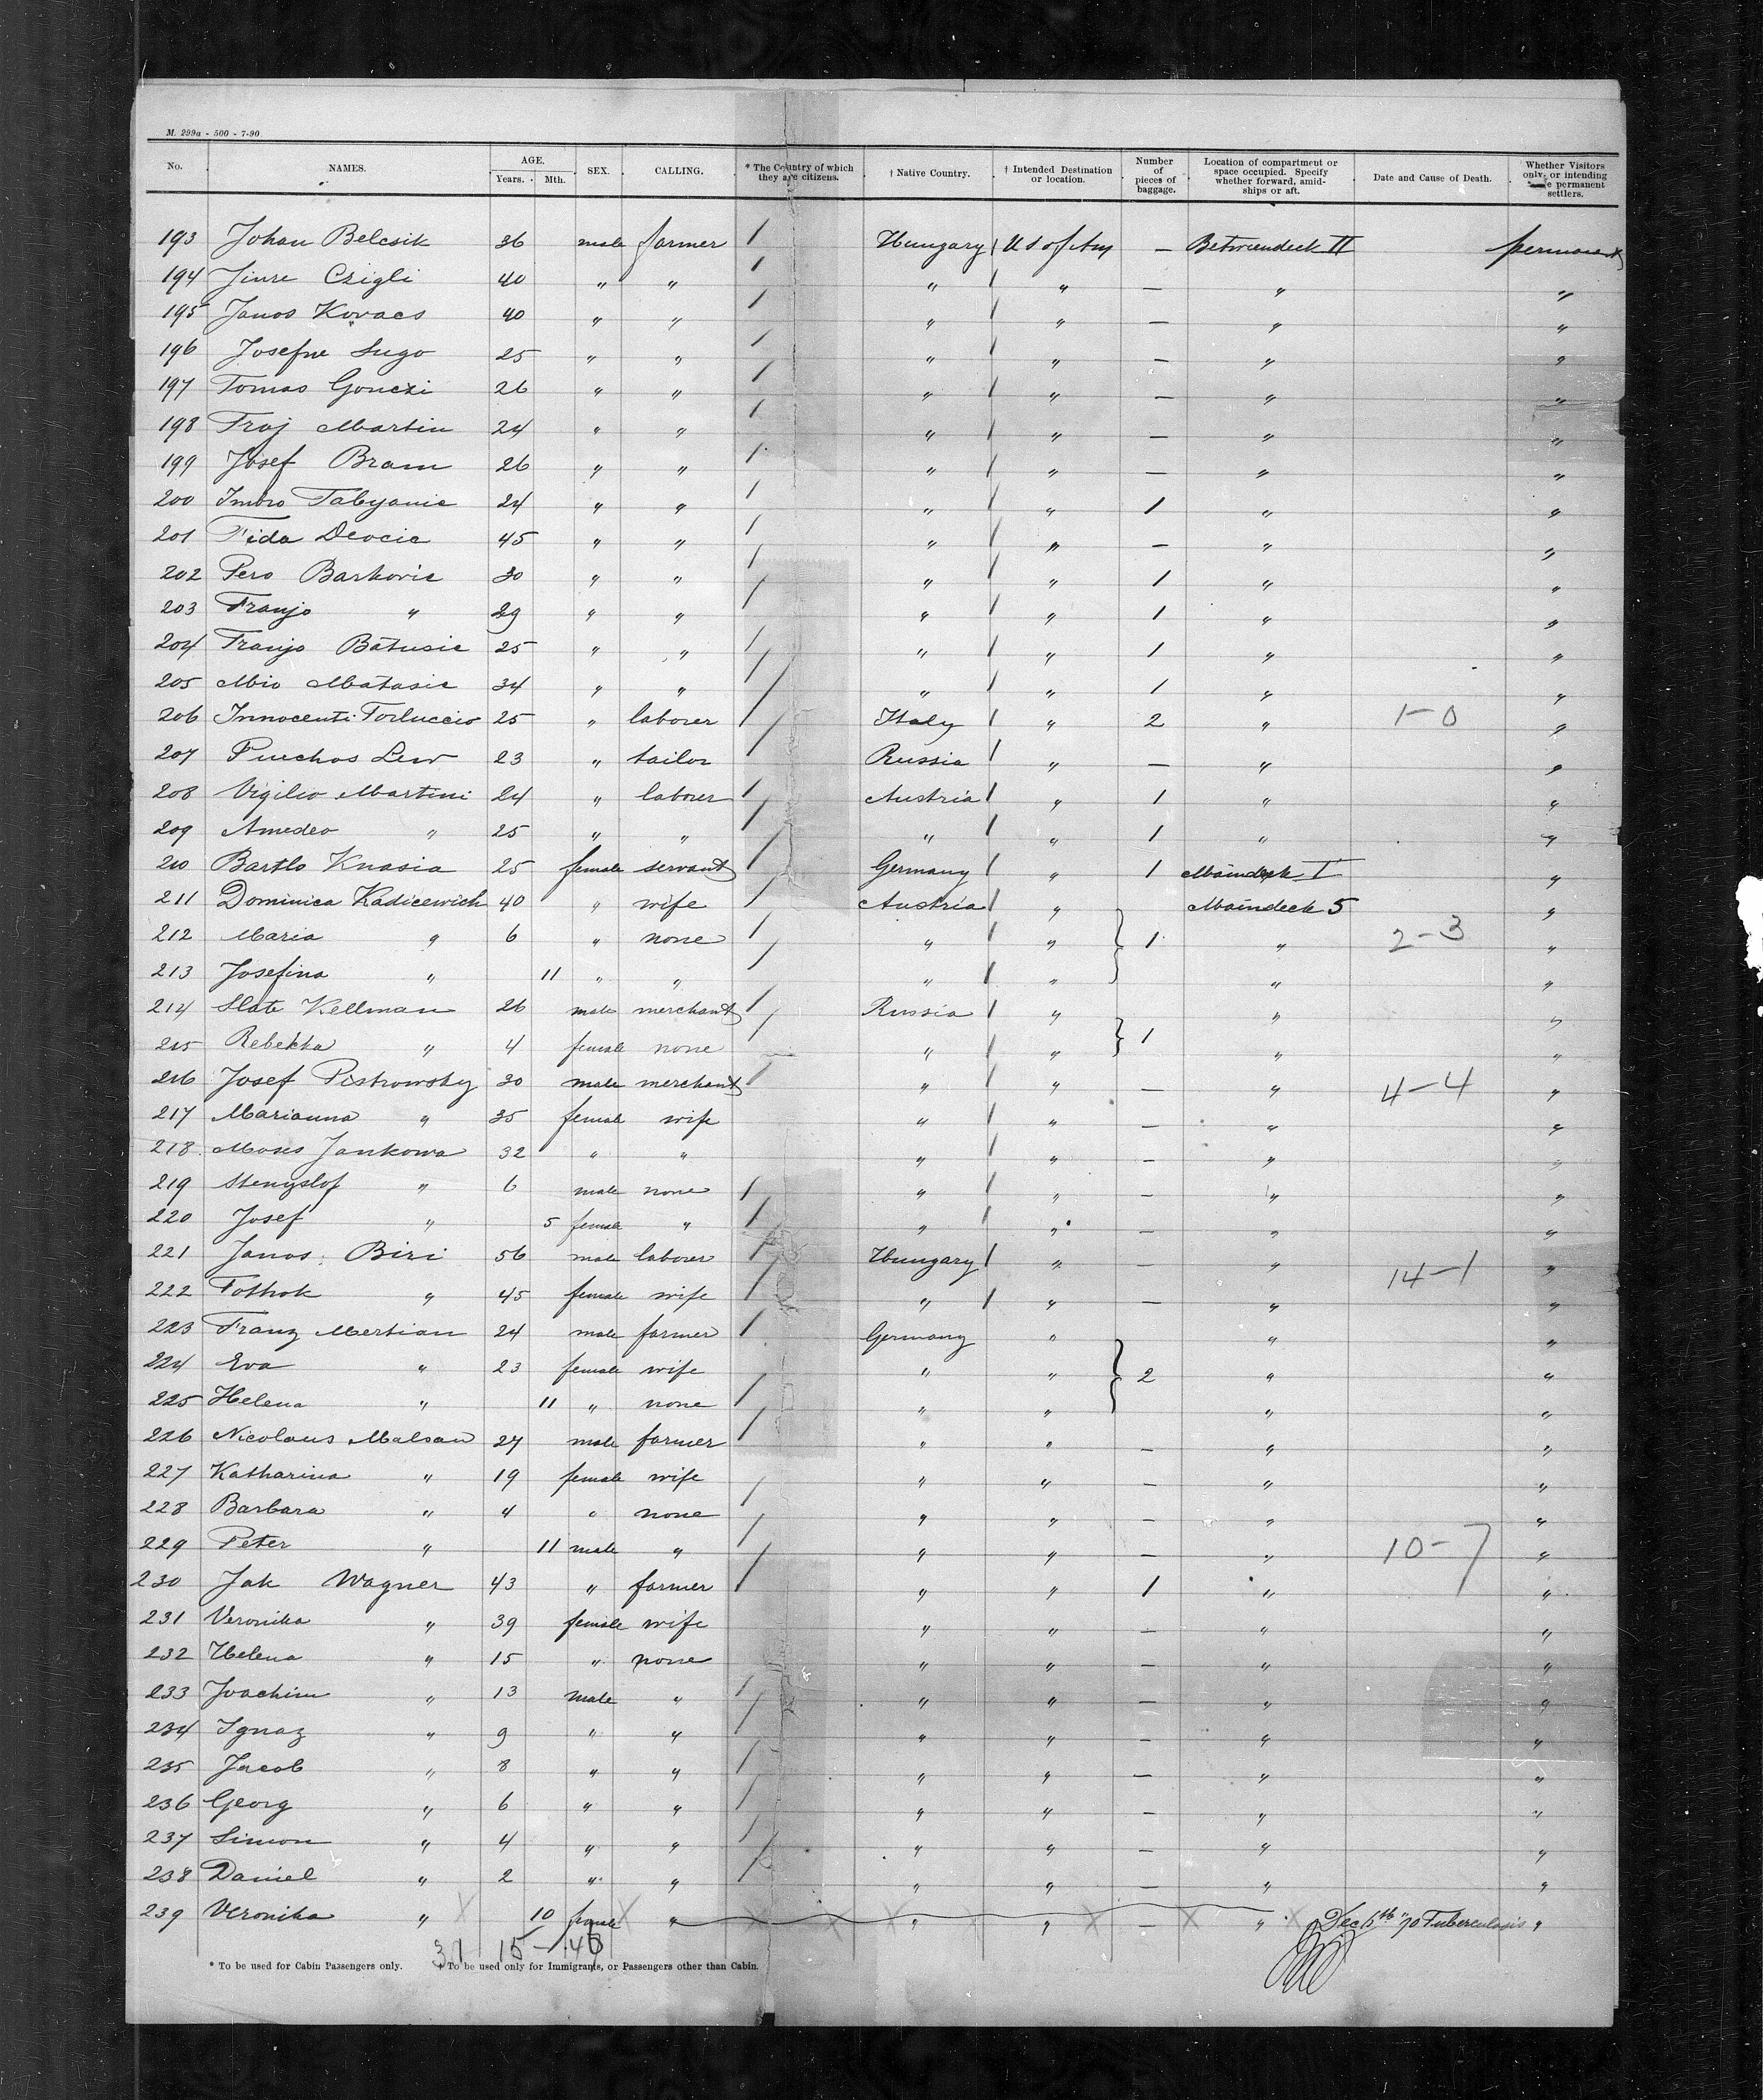 M. 299a - 500 - 7-90
No. NAMES. AGE. Years. Mth. SEX. CALLING. * The Country of which they are citizens. † Native Country. † Intended Destination or location. Number of pieces of baggage. Location of compartment or space occupied. Specify whether forward, amidships or aft. Date and Cause of Death. Whether Visitors only, or intending permanent settlers.
193 Johan Belcsik 36 male farmer / Hungary / U S of Am — Betweendeck II permanent
194 Czigli 40 " " / " / " — " "
195 Janos Kovacs 40 " " / " / " — " "
196 Sugo 25 " " / " / " — " "
197 Tomas Gonczi 26 " " / " / " — " "
198 Martin 24 " " / " / " — " "
199 Josef Bram 26 " " / " / " — " "
200 Imbro Tabyanic 24 " " / " / " 1 " "
201 Fida 45 " " / " / " — " "
202 Pero Barkovic 30 " " / " / " 1 " "
203 Franjo " 29 " " / " / " 1 " "
204 Franjo Batusic 25 " " / " / " 1 " "
205 Mio Matasic 34 " " / " / " 1 " "
206 Innocenti Torluccio 25 " laborer / Italy / " 2 " 1-0 "
207 Lew 23 " tailor / Russia / " — " "
208 Vigilio Martini 24 " laborer / Austria / " 1 " "
209 Amedeo " 25 " " / " / " 1 " "
210 Bartlo Knasia 25 female servant / Germany / " 1 Maindeck I "
211 Dominica Kadicewich 40 " wife / Austria / " Maindeck 5 "
212 Maria " 6 " none / " / " 1 " 2-3 "
213 Josefina " 11 " " / " / " " "
214 Slate Kellman 26 male merchant / Russia / " " "
215 Rebekka " 4 female none / " / " 1 " "
216 Josef Pistrowsky 30 male merchant / " / " — " 4-4 "
217 Marianna " 35 female wife " / " — " "
218 Moses Jankowa 32 " " " / " — " "
219 Stenyslof " 6 male none / " / " — " "
220 Josef " 5 female " / " / " — " "
221 Janos Biri 56 male laborer / Hungary / " — " 14-1 "
222 Fothok " 45 female wife / " / " — " "
223 Franz Mertian 24 male farmer / Germany " " "
224 Eva " 23 female wife " " 2 " "
225 Helena " 11 " none / " " " "
226 Nicolaus Malsau 27 male farmer / " " — " "
227 Katharina " 19 female wife " " — " "
228 Barbara " 4 " none / " " — " "
229 Peter " 11 male " / " " — " 10-7 "
230 Jak Wagner 43 " farmer / " " 1 " "
231 Veronika " 39 female wife " " — " "
232 Helena " 15 " none " " — " "
233 Joachim " 13 male " / " " — " "
234 Ignaz " 9 " " / " " — " "
235 Jacob " 8 " " / " " — " "
236 Georg " 6 " " / " " — " "
237 Simon " 4 " " / " " — " "
238 Daniel " 2 " " / " " — " "
239 Veronika " 10 female " " " — " Dec 5th 90 Tuberculosis "
31 15 - 46
* To be used for Cabin Passengers only. † To be used only for Immigrants, or Passengers other than Cabin.